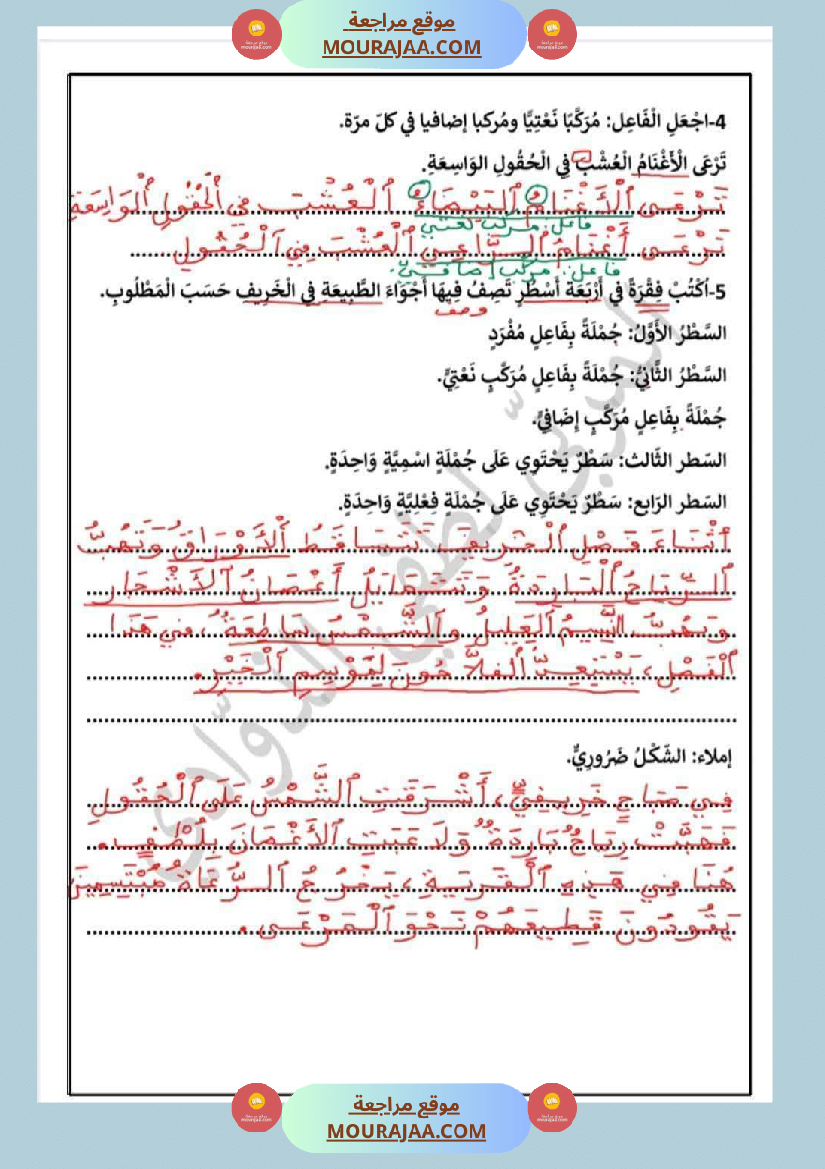 موقع مراجعة
MOURAJAA.COM
4-اجْعَلِ الْفَاعِل: مُرَكَّبًا نَعْتِيًّا ومُركبا إضافيا في كلّ مرّة.
تَرْعَى الْأَغْنَامُ الْعُشْبَ فِي الْحُقُولِ الوَاسِعَةِ.
تَرْعَى الْأَغْنَامُ البَيْضَاءُ الْعُشْبَ فِي الْحُقُولِ الْوَاسِعَةِ
فاعل: مركب نعتي
تَرْعَى أَغْنَامُ الرَّاعِي الْعُشْبَ فِي الْحُقُولِ
فاعل: مركب إضافي
5-اُكْتُبْ فِقْرَةً فِي أَرْبَعَة أَسْطُرٍ تَصِفُ فِيهَا أَجْوَاءَ الطَّبِيعَةِ فِي الْخَرِيفِ حَسَبَ الْمَطْلُوبِ.
وصف
السَّطْرُ الأَوَّلُ: جُمْلَةً بِفَاعِلٍ مُفْرَدٍ
السَّطْرُ الثَّانِيُّ: جُمْلَةً بِفَاعِلٍ مُرَكَّبٍ نَعْتِيٍّ.
جُمْلَةً بِفَاعِلٍ مُرَكَّبٍ إِضَافِيٍّ.
السّطر الثّالث: سَطْرٌ يَحْتَوِي عَلَى جُمْلَةٍ اسْمِيَّةٍ وَاحِدَةٍ.
السّطر الرّابع: سَطْرٌ يَحْتَوِي عَلَى جُمْلَةٍ فِعْلِيَّةٍ وَاحِدَةٍ.
أَثْنَاءَ فَصْلِ الْخَرِيفِ تَتَسَاقَطُ الْأَوْرَاقُ وَتَهُبُّ
الرِّيَاحُ الْبَارِدَةُ وَتَتَمَايَلُ أَغْصَانُ الْأَشْجَارِ
وَيَهُبُّ النَّسِيمُ الْعَلِيلُ وَالشَّمْسُ سَاطِعَةٌ، فِي هَذَا
الْفَصْلِ، يَسْتَعِدُّ الْفَلَّاحُونَ لِمَوْسِمِ الْخَيْرِ.
إملاء: الشّكْلُ ضَرُورِيٌّ.
فِي صَبَاحٍ خَرِيفِيٍّ، أَشْرَقَتِ الشَّمْسُ عَلَى الْحُقُولِ
فَهَبَّتْ رِيَاحٌ بَارِدَةٌ وَلَاعَبَتِ الْأَغْصَانَ بِلُطْفٍ.
هُنَا فِي هَذِهِ الْقَرْيَةِ، يَخْرُجُ الرُّعَاةُ مُبْتَسِمِينَ
يَقُودُونَ قَطِيعَهُمْ نَحْوَ الْمَرْعَى.
موقع مراجعة
MOURAJAA.COM